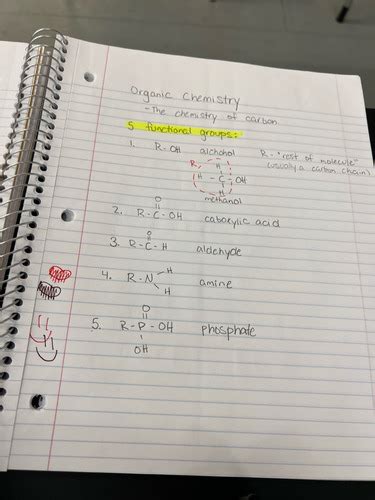 Organic Chemistry
- The chemistry of carbon
5 functional groups:
1. R-OH alchohol R - "rest of molecule"
(usually a carbon chain)
R H
H - C - OH
H
methanol
O
2. R-C-OH caboxylic acid
O
3. R-C-H aldehyde
H
4. R-N amine
H
O
5. R-P-OH phosphate
OH